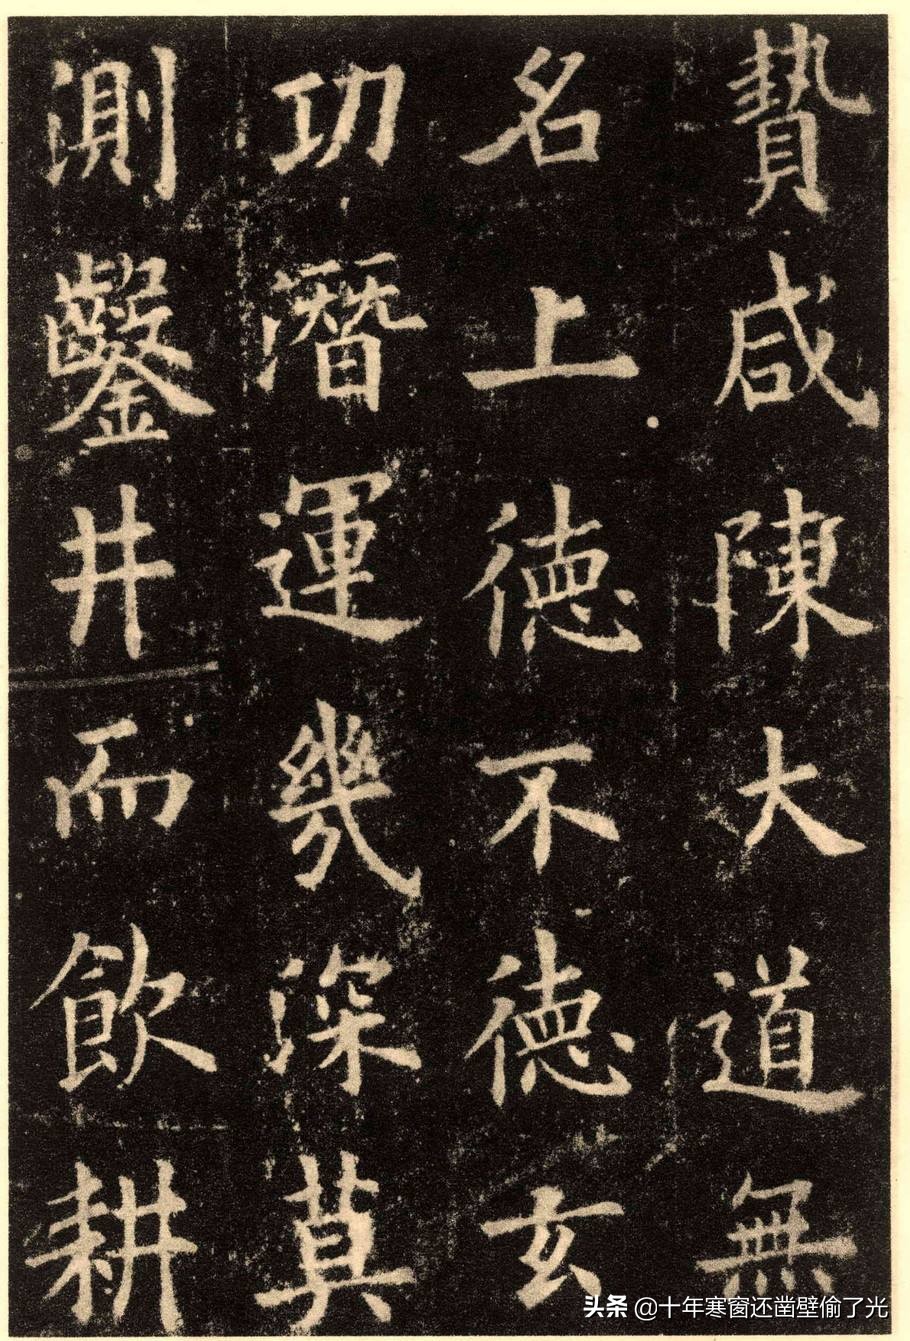 贄咸陳大道無
名上德不德玄
功潛運幾深莫
測鑿井而飲耕
头条 @十年寒窗还凿壁偷了光